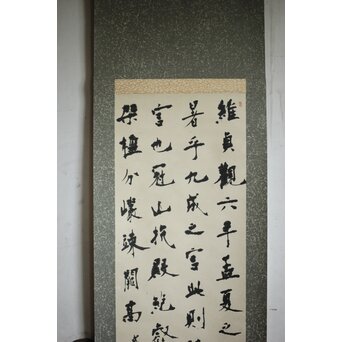 維貞觀六年孟夏之
暑乎九成之宮此則
宮也冠山抗殿絕壑
架楹分巖竦闕高